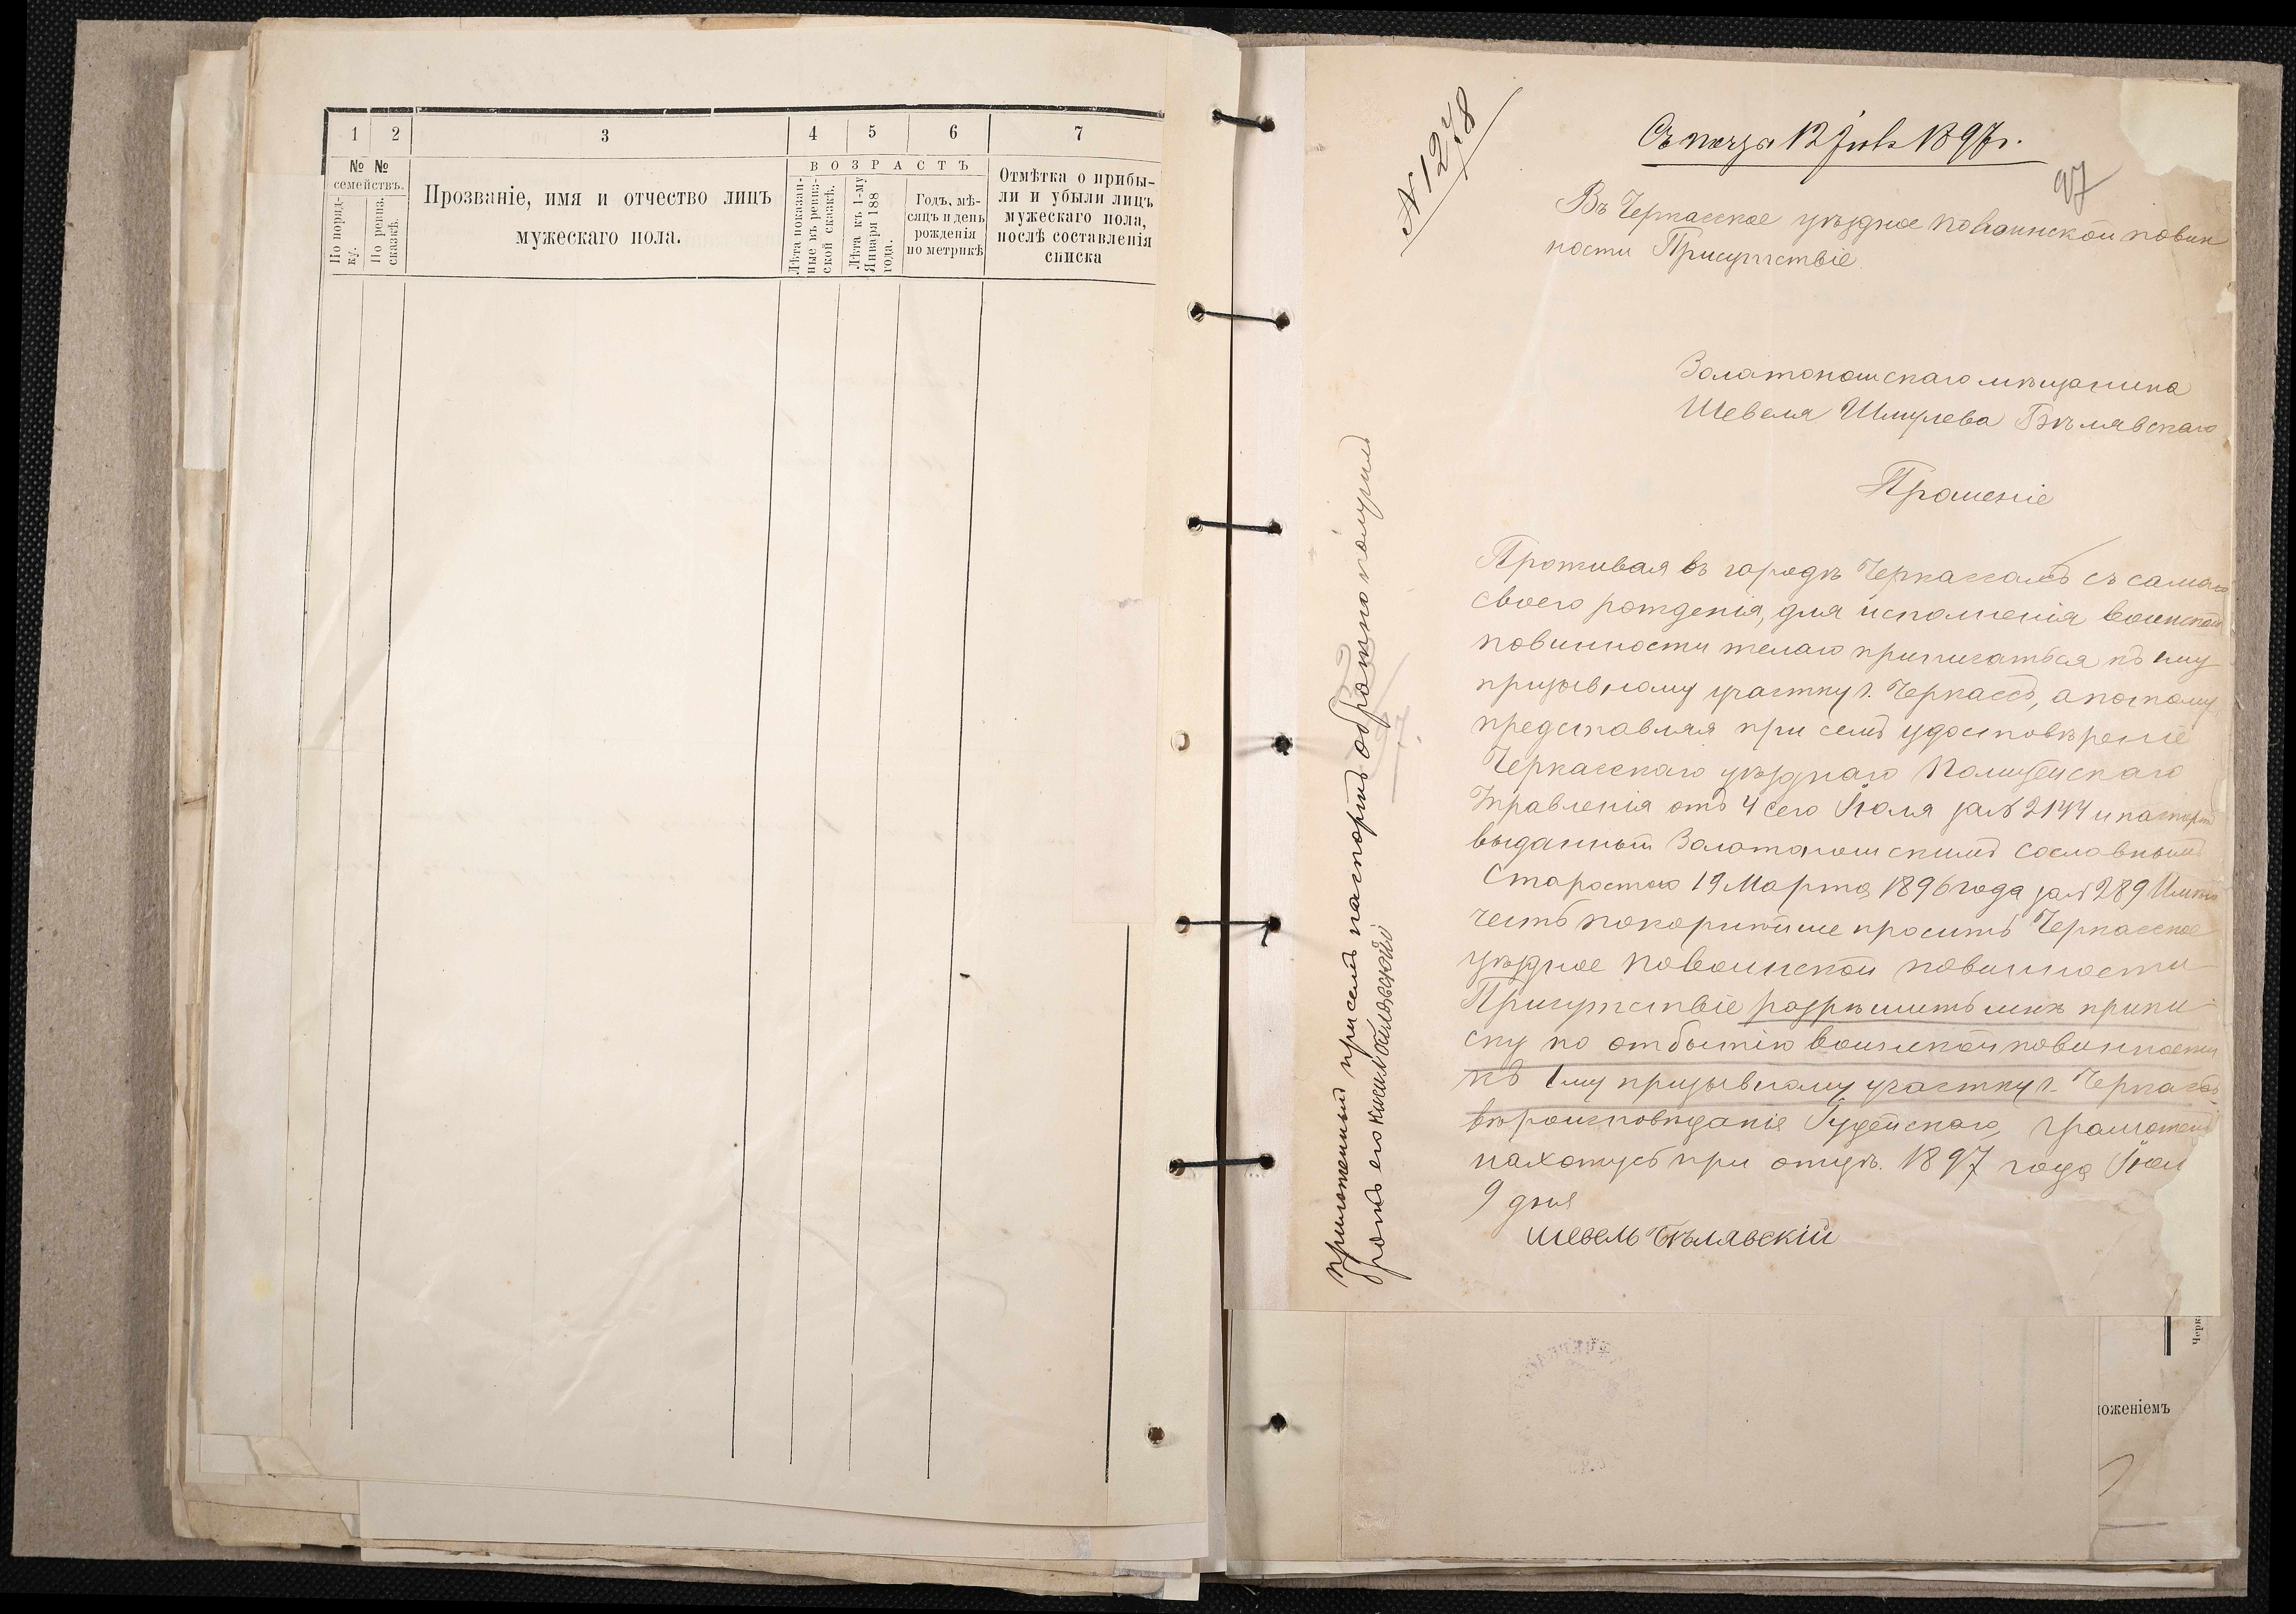 1 2 3 4 5 6 7
№ №
семействъ.
По поряд-
ку.
По ревиз.
сказкѣ.
Прозваніе, имя и отчество лицъ
мужескаго пола.
ВОЗРАСТЪ
Лѣта показан-
ные въ ревиз-
ской сказкѣ.
Лѣта къ 1-му
Января 188
года.
Годъ, мѣ-
сяцъ и день
рожденія
по метрикѣ
Отмѣтка о прибы-
ли и убыли лицъ
мужескаго пола,
послѣ составленія
списка
N 1278
12 1897 г.
97
Въ Черкасское уѣздное по воинской повин
ности Присутствіе
Золатоношскаго мѣщанина
Шевеля Шмулева Бѣлявскаго
Прошеніе
Проживая въ городѣ Черкассахъ съ самаго
своего рожденія, для исполненія воинской
повинности желаю приписаться къ 1му
призывному участку г. Черкассъ, а потому
представляя при семъ удостовѣреніе
Черкасскаго уѣзднаго Полицейскаго
Управленія отъ 4 сего Іюля за N 2144 и паспортъ
выданный Золатоношскимъ сословнымъ
Старостою 19 Марта 1896 года за N 289 Имѣю
честь покорнѣйше просить Черкасское
уѣздное по воинской повинности
Присутствіе разрѣшить мнѣ припи
ску по отбытію воинской повинности
къ 1му призывному участку г. Черкассъ
вѣроисповѣданія Іудейскаго, грамотенъ
нахожусь при отцѣ. 1897 года Іюл
9 дня
Шевель Бѣлявскій
приложенный при семъ паспортъ обратно получилъ
братъ его Кисилъ Бѣлявскій
Черк
ложеніемъ